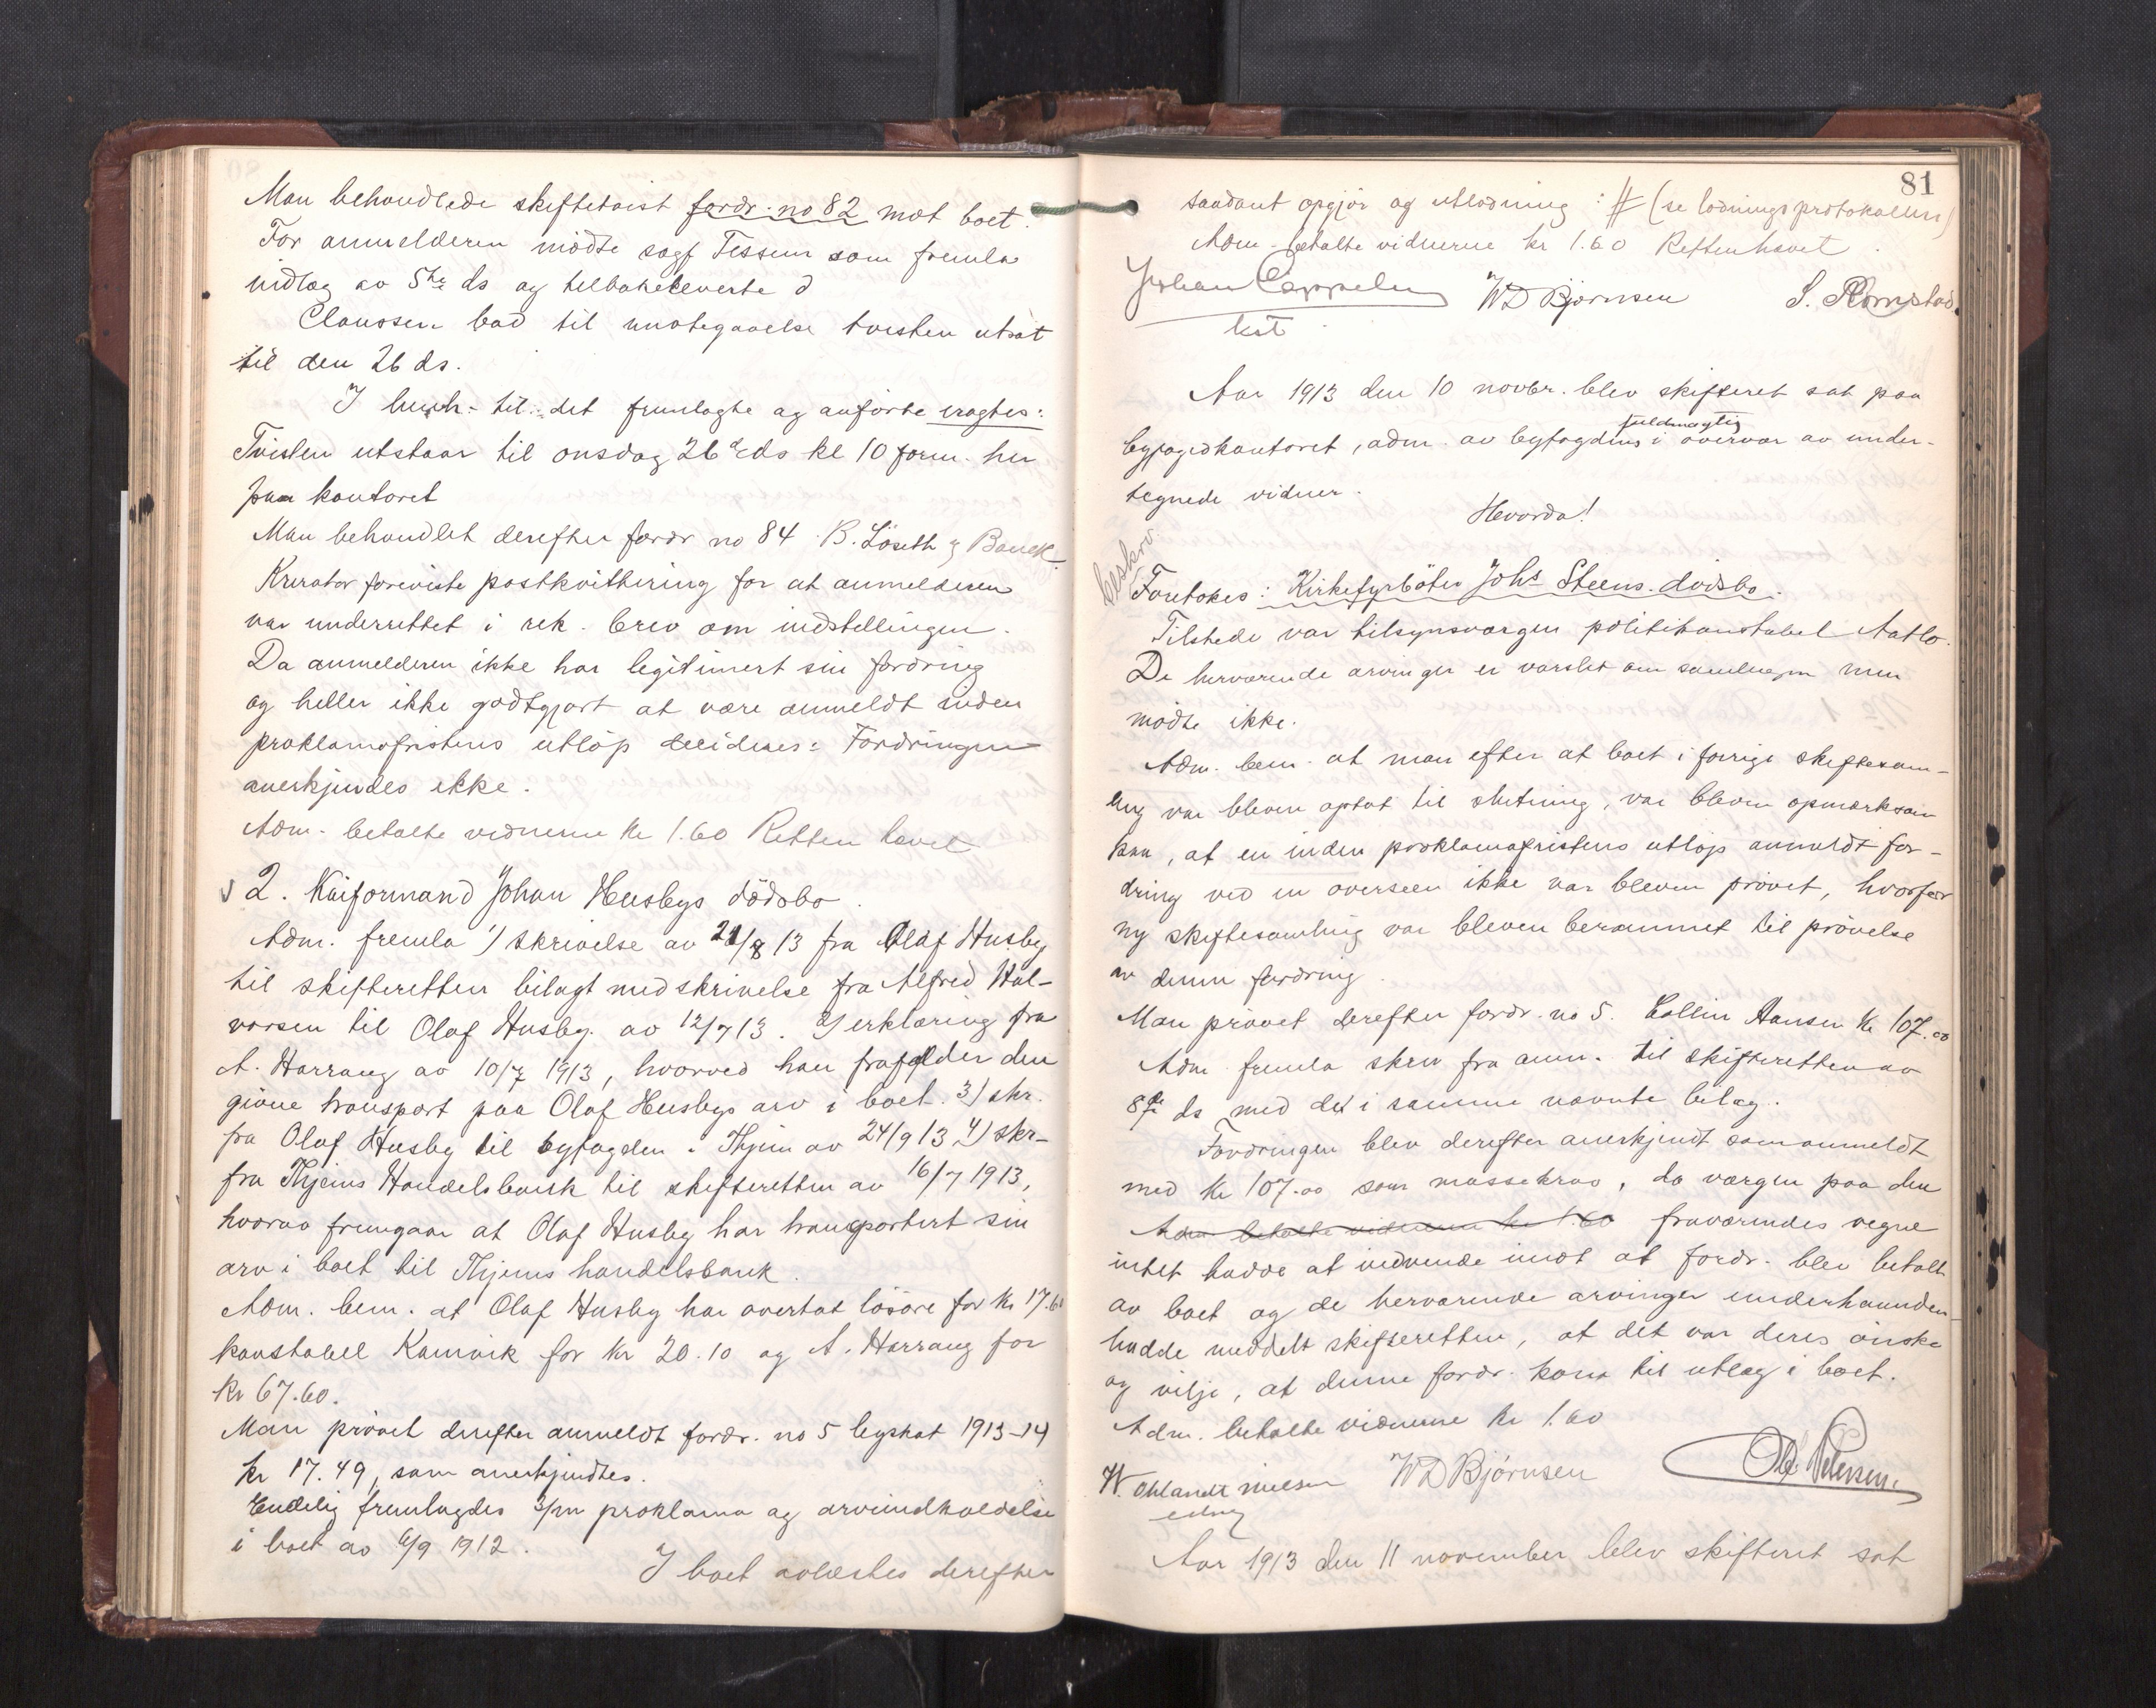 Man behandlede skiftetvist fordr. no 82 mot boet.
For anmelderen mödte sagf Tessem som fremla
indlæg av 5te ds og tilbakeleverte d
Claussen bad til imøtegaaelse tvisten utsat
til den 26 ds.
I henh. til det fremlagte og anførte eragtes:
Tvisten utstaar til onsdag 26de ds kl 10 form. her
paa kontoret
Man behandlet derefter fordr no 84 B. Löseth &
Kurator foreviste postkvittering for at anmelderen
var underrettet i rek. brev om indstillingen.
Da anmelderen ikke har legitimert sin fordring
og heller ikke godtgjort at være anmeldt inden
proklamafristens utløp decideres: Fordringen
anerkjendes ikke.
Adm. betalte vidnerne kr 1.60 Retten hævet
2. Kaiformand Johan Husbys dödsbo.
Adm. fremla 1) skrivelse av 21/8 13 fra Olaf Husby
til skifteretten bilagt med skrivelse fra Alfred Hal-
vorsen til Olaf Husby av 12/7 13. 2) erklæring fra
A. Harrang av 10/7 1913, hvorved han frafalder den
givne transport paa Olaf Husbys arv i boet. 3) skr.
fra Olaf Husby til byfogden i Thjem av 24/9 13 4) skr-
fra Thjems Handelsbank til skifteretten av 16/7 1913,
hvorav fremgaar at Olaf Husby har transportert sin
arv i boet til Thjems handelsbank.
Adm. bem. at Olaf Husby har overtat lösöre for kr 17.60
konstabel Kamvik for kr 20.10 og A. Harrang for
kr 67.60.
Man prövet derefter anmeldt fordr. no 5 byskat 1913-14
kr 17.49, som anerkjendtes.
Endelig fremlagdes 3/m proklama og arveindkaldelse
i boet av 6/9 1912.
I boet avlæstes derefter
81
saadant opgjör og utlodning: # (se lodningsprotokollen)
Adm. betalte vidnerne kr 1.60 Retten hævet.
Johan Cappelen
kst
WD Bjørnsen
S. Romstad
Aar 1913 den 10 novbr. blev skifteret sat paa
byfogedkontoret, adm. av byfogdens fuldmægtig i overvær av under-
tegnede vidner.
Hvorda!
beskrev
Foretokes: Kirkefyrböter Johs Steens dödsbo.
Tilstede var tilsynsværgen politikonstabel Aatlo.
De herværende arvinger er varslet om samlingen men
mödte ikke.
Adm. bem. at man efter at boet i forrige skiftesam-
ling var bleven optat til slutning, var bleven opmærksom
paa, at en inden proklamafristens utløp anmeldt for-
dring ved en overseen ikke var bleven prövet, hvorfor
ny skiftesamling var bleven berammet til prövelse
av denne fordring.
Man prövet derefter fordr. no 5. Collin Hansen kr 107.00
Adm fremla skriv fra anm. til skifteretten av
8de ds med det i samme nævnte bilag.
Fordringen blev derefter anerkjendt som anmeldt
med kr 107.00 som massekrav, da værgen paa den
Adm betalte vidnerne kr 1.60 fraværendes vegne
intet hadde at indvende imot at fordr. blev betalt
av boet og de herværende arvinger underhaanden
hadde meddelt skifteretten, at det var deres önske
og vilje, at denne fordr. kom til utlæg i boet.
Adm. betalte vidnerne kr 1.60
W. Ohlandt Nielsen
edsv
WD Bjørnsen
Ole Petersen.
Aar 1913 den 11 november blev skifteret sat